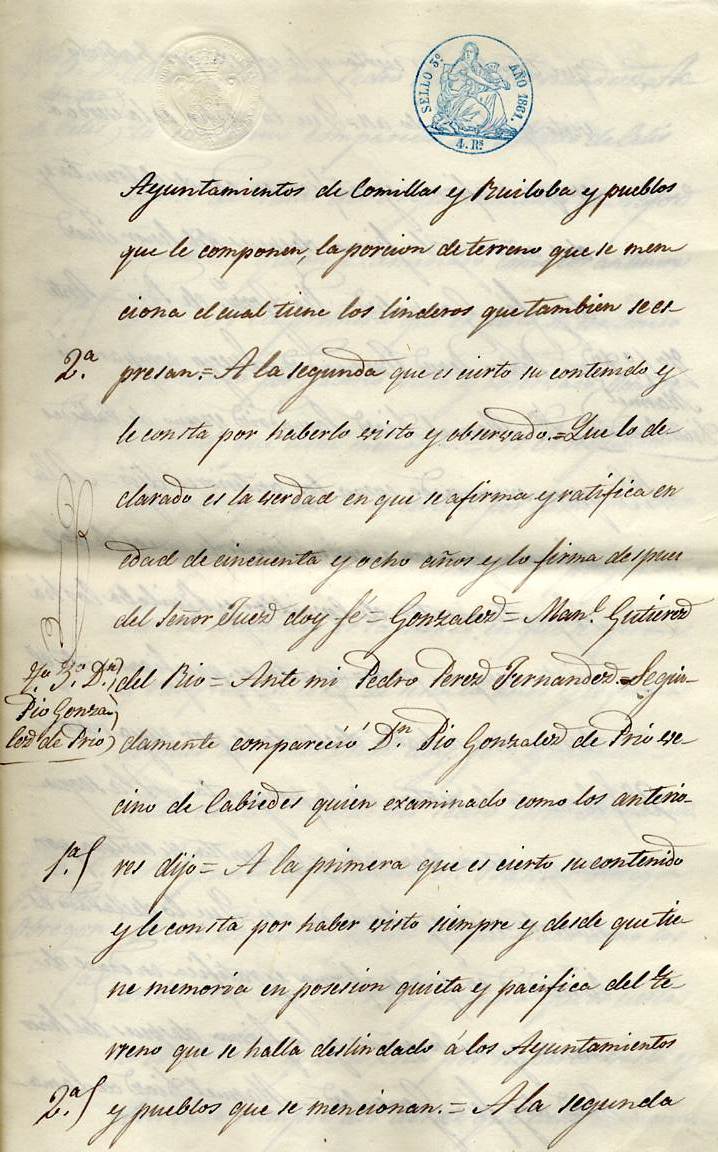 SELLO 3º AÑO 1861.
4. Rs
Ayuntamientos de Comillas y Ruiloba y pueblos
que le componen, la porcion de terreno que se men
ciona el cual tiene los linderos que tambien se es-
2.ª presan.= A la segunda que es cierto su contenido y
le consta por haberlo visto y observado.= Que lo de
clarado es la verdad en que se afirma y ratifica en
edad de cincuenta y ocho años y lo firma despues
del Señor Juez doy fé = Gonzalez = Manl. Gutierez
T.º 3.º Dn. del Rio = Ante mi Pedro Perez Fernandez.= Segui-
Pio Gonza
lez de Prio damente compareció Dn. Pio Gonzalez de Prio ve-
cino de Cabiedes quien examinado como los anterio-
1.ª res dijo = A la primera que es cierto su contenido
y le consta por haber visto siempre y desde que tie
ne memoria en posesion quieta y pacifica del te-
rreno que se halla deslindado á los Ayuntamientos
2.ª y pueblos que se mencionan.= A la segunda